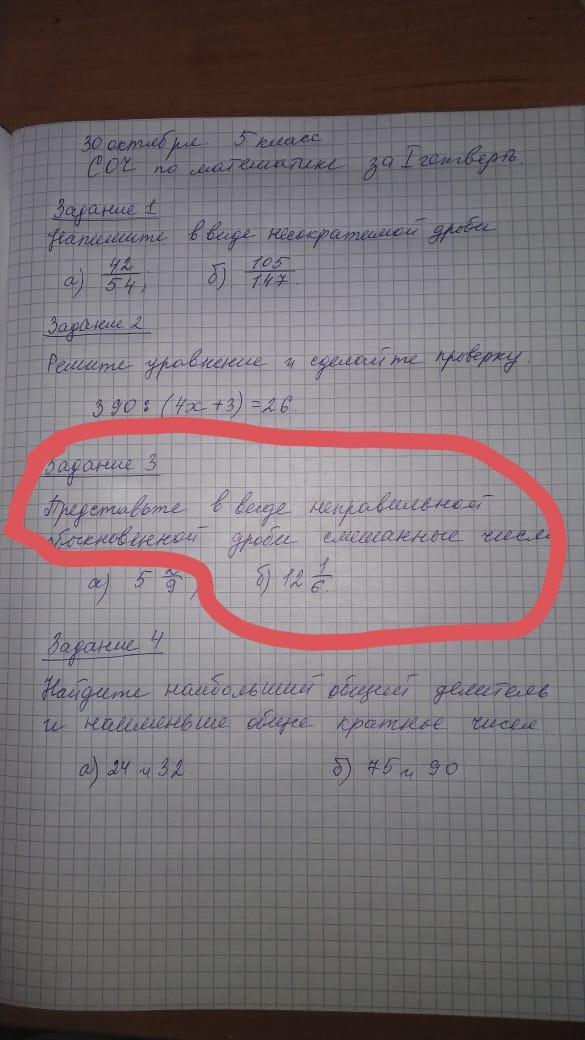 30 октября. 5 класс
СОЧ по математике за I четверть.
Задание 1
Напишите в виде несократимой дроби
а) 42/54; б) 105/147.
Задание 2
Решите уравнение и сделайте проверку.
390 : (4х + 3) = 26.
Задание 3
Представьте в виде неправильной
обыкновенной дроби смешанные числа
а) 5 2/9; б) 12 1/6.
Задание 4
Найдите наибольший общий делитель
и наименьше общее кратное чисел.
а) 24 и 32. б) 75 и 90